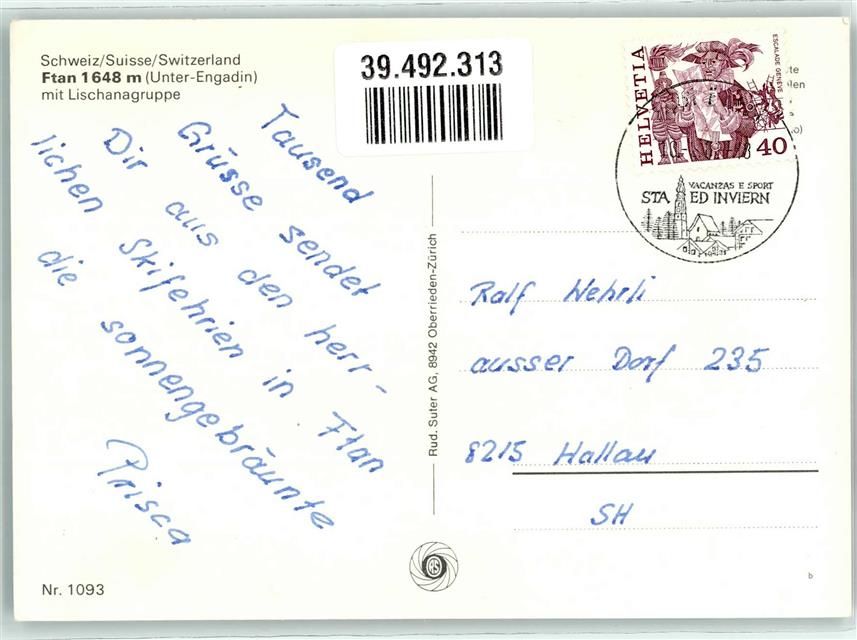 Schweiz/Suisse/Switzerland
Ftan 1648 m (Unter-Engadin)
mit Lischanagruppe
39.492.313
Tausend
Grüsse sendet
Dir aus den herr-
lichen Skifehrien in Ftan
die sonnengebräunte
Prisca
Nr. 1093
Rud. Suter AG, 8942 Oberrieden-Zürich
HELVETIA
ESCALADE GENÈVE
40
VACANZAS E SPORT
STA ED INVIERN
Ralf Wehrli
ausser Dorf 235
8215 Hallau
SH
b